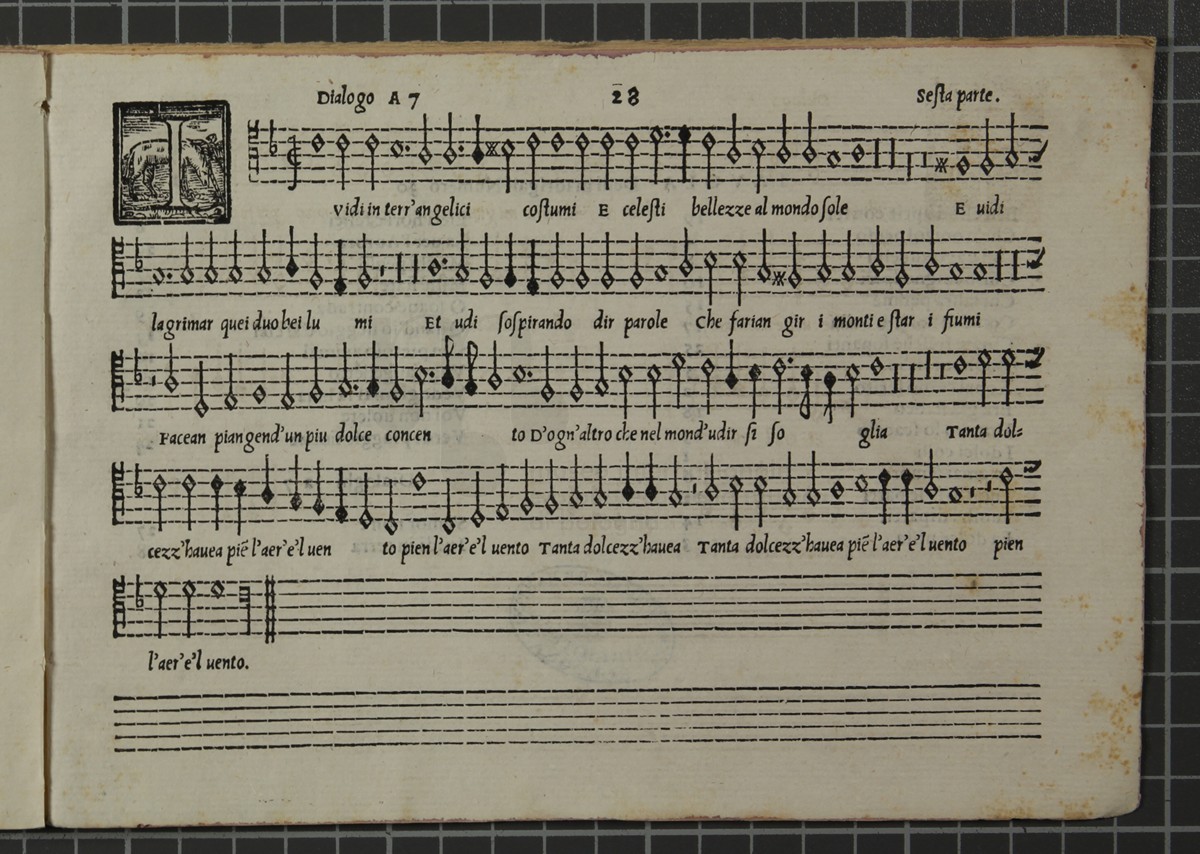 Dialogo A 7 28 Sesta parte.
I vidi in terr'angelici costumi E celesti bellezze al mondo sole E uidi
lagrimar quei duo bei lu mi Et udi sospirando dir parole Che farian gir i monti e star i fiumi
Facean piangend'un piu dolce concen to D'ogn'altro che nel mond'udir si so glia Tanta dol=
cezz'hauea piẽ l'aer'e'l uen to pien l'aer'e'l uento Tanta dolcezz'hauea Tanta dolcezz'hauea piẽ l'aer'e'l uento pien
l'aer'e'l uento.